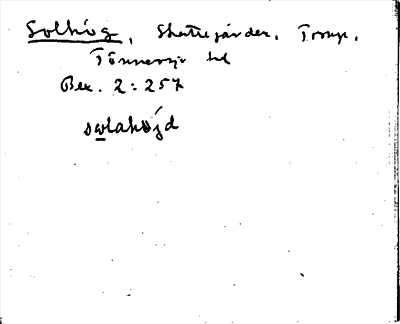 Solhög, Skattegården, Torup,
Tönnersjö hd
Bex. 2:257
swlahøjd